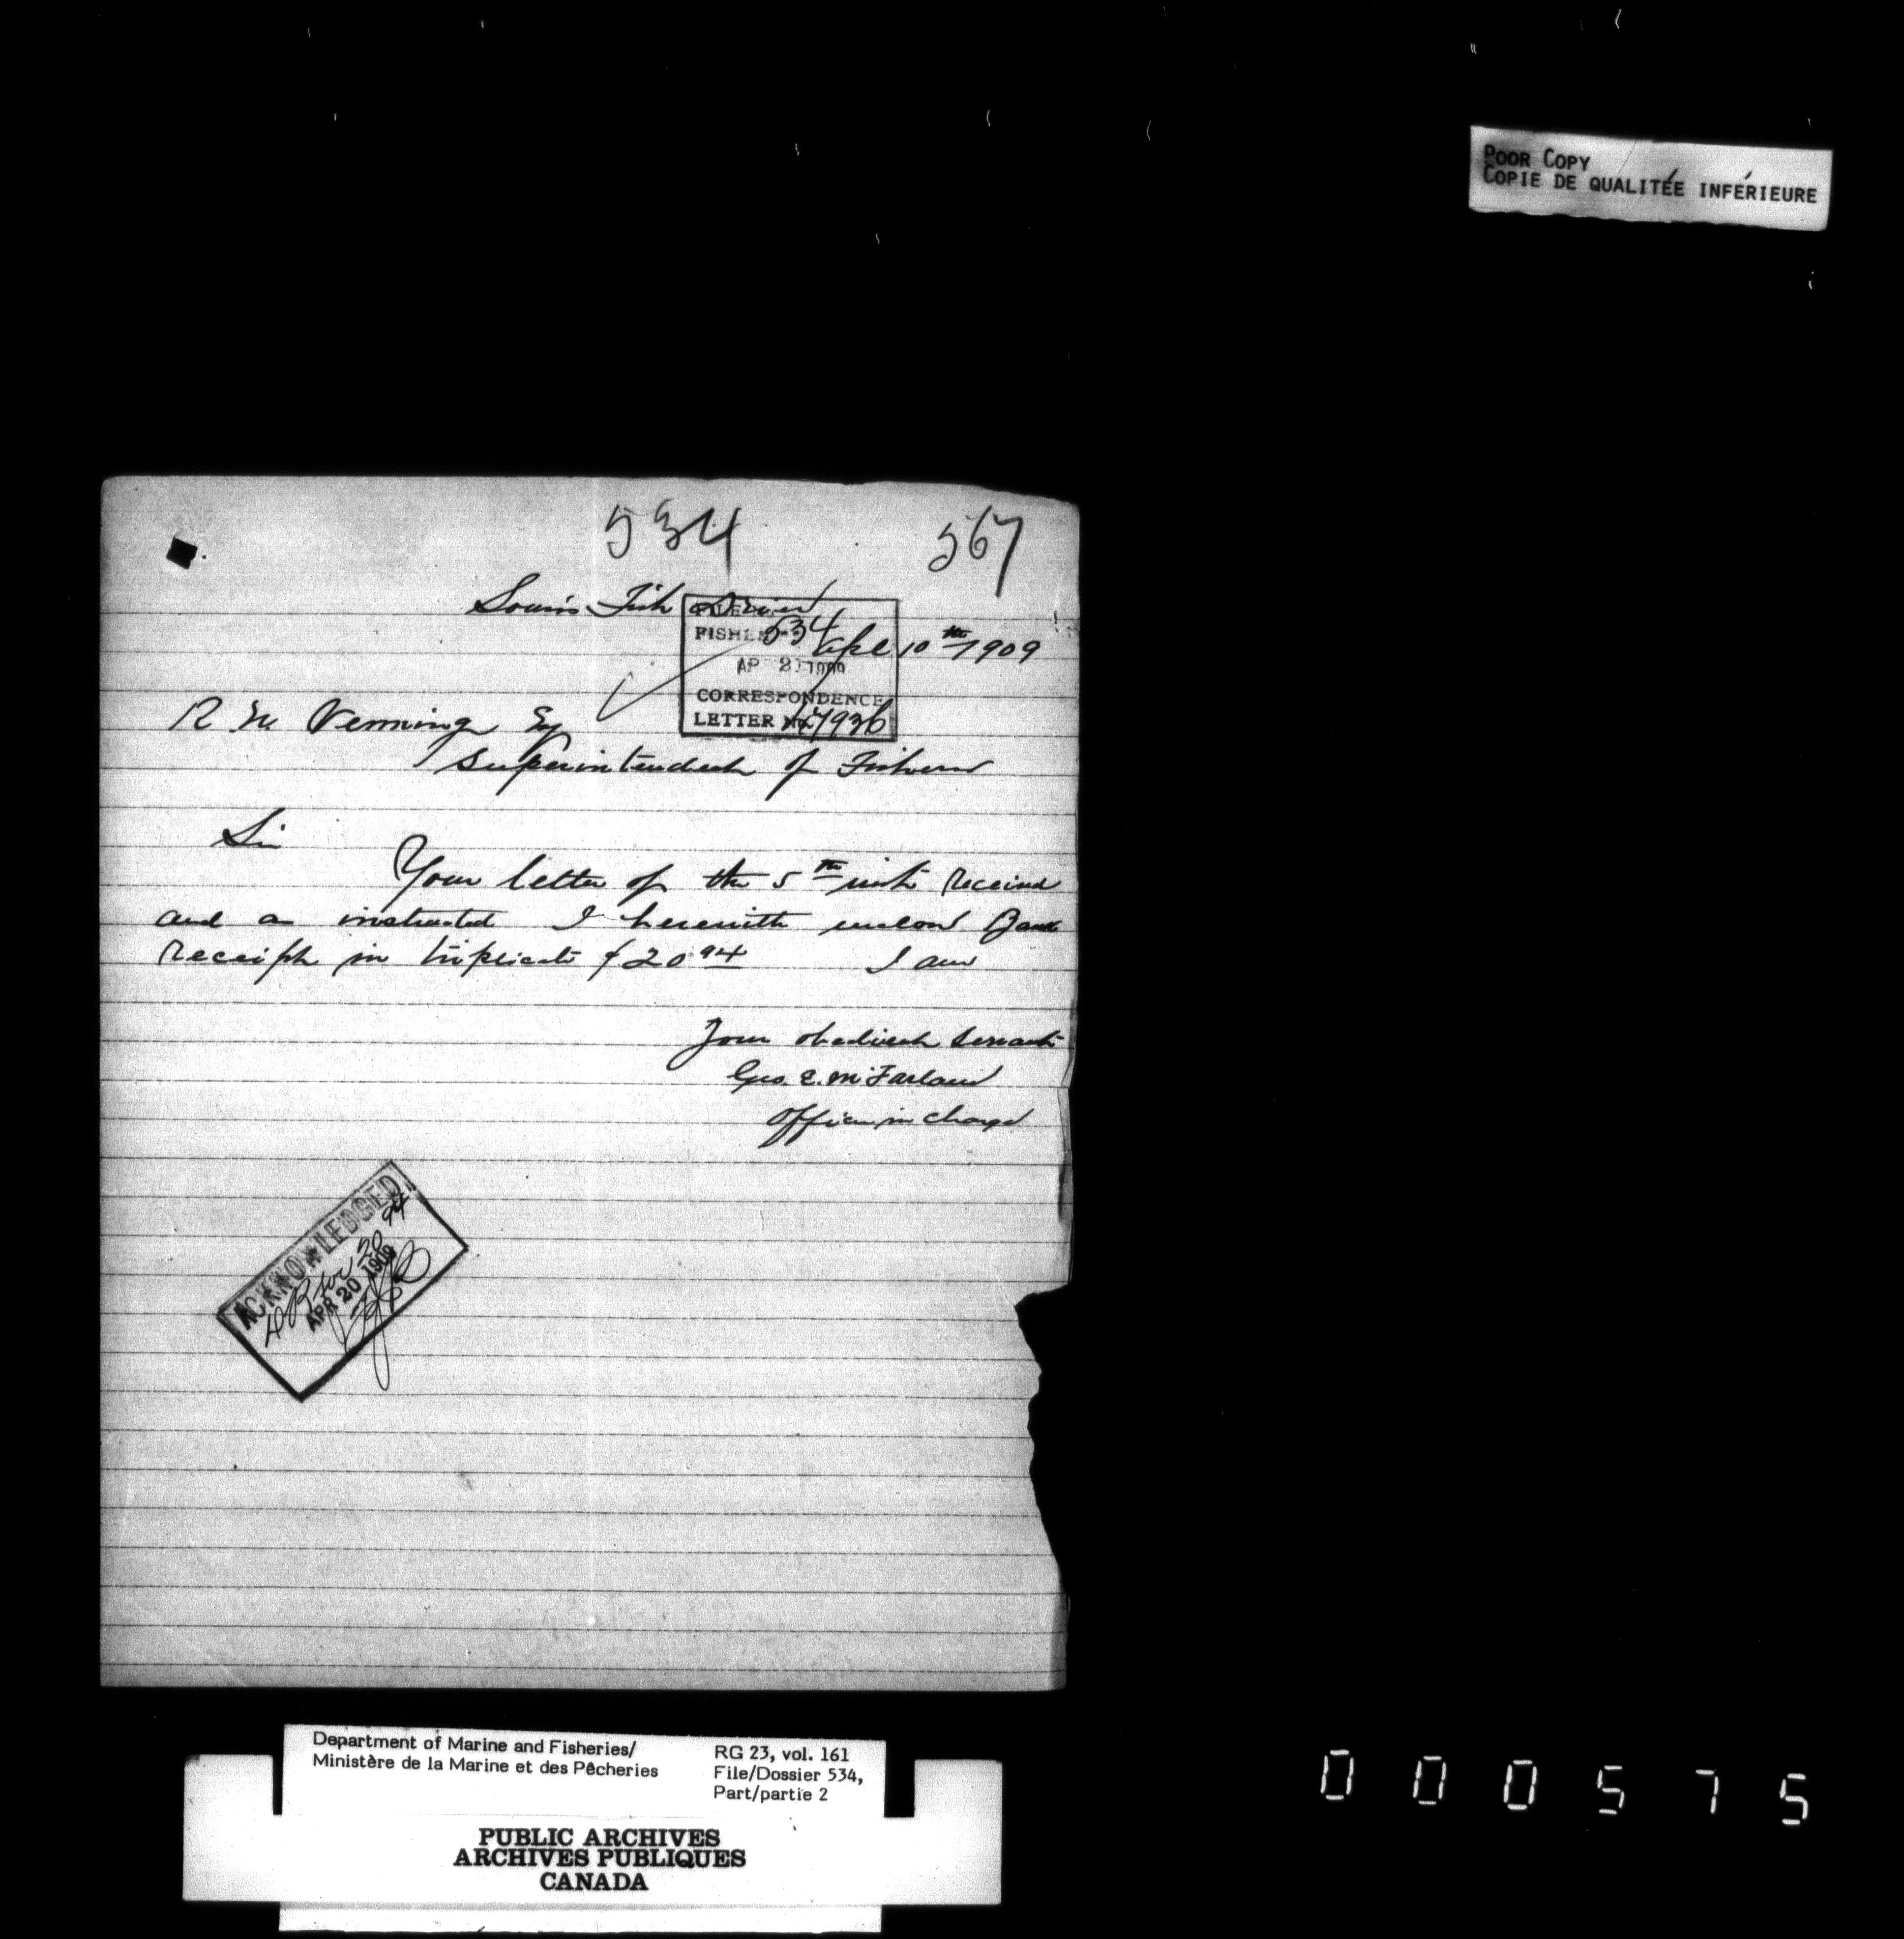 POOR COPY
COPIE DE QUALITÉE INFÉRIEURE
534 567
Souris Fish Drier
Apl 10th 1909
FILE
FISHE 534
AP 2 1909
CORRESPONDENCE
LETTER No 7936
R. N. Venning Esq
Superintendent of Fisheries
Sir
Your letter of the 5th inst received
and as instructed I herewith enclose Bank
Receipt in triplicate $20.94 I am
Your obedient Servant
Geo. E. McFarland
Officer in Charge
ACKNOWLEDGED
DR for 20 94
APR 20 1909
Department of Marine and Fisheries/
Ministère de la Marine et des Pêcheries
RG 23, vol. 161
File/Dossier 534,
Part/partie 2
PUBLIC ARCHIVES
ARCHIVES PUBLIQUES
CANADA
000575